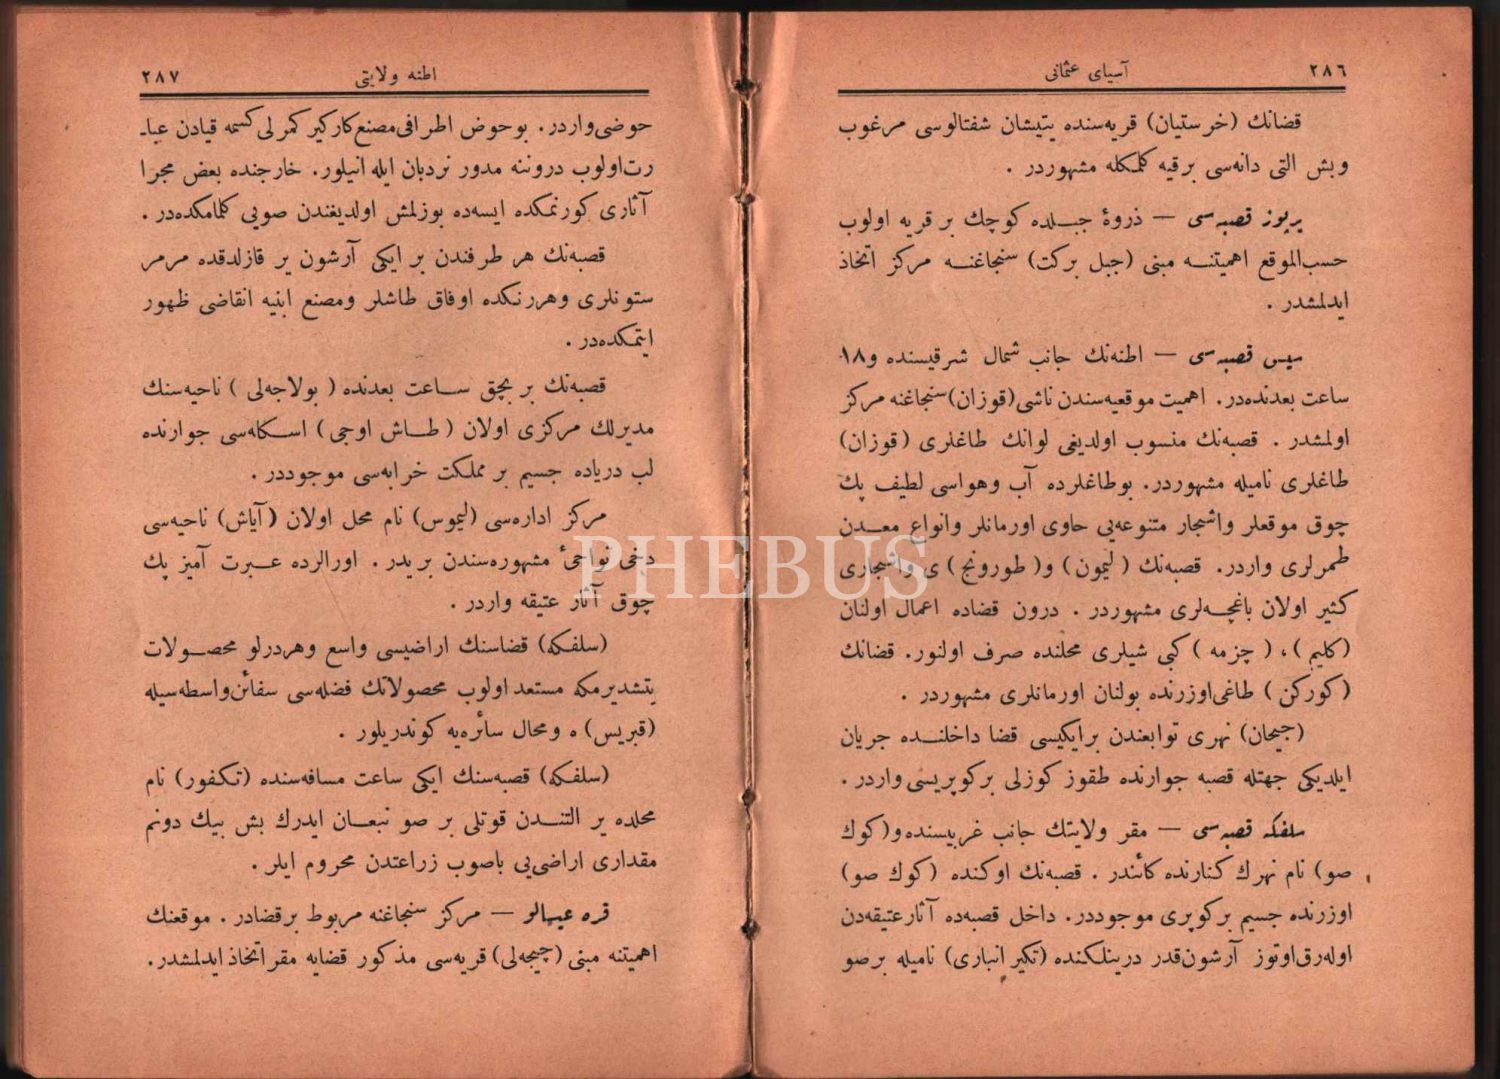 ٢٨٦
آسیای عثمانی
قضانك (خرستیان) قریه‌سنده یتیشان شفتالوسی مرغوب
وبش التی دانه‌سی برقیه كلمكله مشهوردر .
یرپوز قصبه‌سی — ذروهٔ جبلده كوچك بر قریه اولوب
حسب‌الموقع اهمیتنه مبنی (جبل بركت) سنجاغنه مركز اتخاذ
ایدلمشدر .
سیس قصبه‌سی — اطنه‌نك جانب شمال شرقیسنده و١٨
ساعت بعدنده‌در. اهمیت موقعیه‌سندن ناشی (قوزان) سنجاغنه مركز
اولمشدر . قصبه‌نك منسوب اولدیغی لوانك طاغلری (قوزان)
طاغلری نامیله مشهوردر. بوطاغلرده آب وهواسی لطیف پك
چوق موقعلر واشجار متنوعه‌یی حاوی اورمانلر وانواع معدن
طمرلری واردر. قصبه‌نك (لیمون) و(طورونج) ی واشجاری
كثیر اولان باغچه‌لری مشهوردر . درون قضاده اعمال اولنان
(كلیم) ، (چزمه) كبی شیلری محلنده صرف اولنور. قضانك
(كوركن) طاغی اوزرنده بولنان اورمانلری مشهوردر .
(جیحان) نهری توابعندن برایكیسی قضا داخلنده جریان
ایلدیكی جهتله قصبه جوارنده طقوز كوزلی بركوپریسی واردر .
سلفكه قصبه‌سی — مقر ولایتك جانب غربیسنده و(كوك
صو) نام نهرك كنارنده كائندر . قصبه‌نك اوكنده (كوك صو)
اوزرنده جسیم بركوپری موجوددر. داخل قصبه‌ده آثارعتیقه‌دن
اوله‌رق اوتوز آرشون قدر درینلكنده (تكیر انباری) نامیله برصو
٢٨٧
اطنه ولایتی
حوضی واردر. بوحوض اطرافی مصنع كاركیر كمرلی كسمه قیادن عبا‌ـ
رت اولوب دروننه مدور نردبان ایله انیلور. خارجنده بعض مجرا
آثاری كورنمكده ایسه‌ده بوزلمش اولدیغندن صویی كلمامكده‌در .
قصبه‌نك هر طرفندن بر ایكی آرشون یر قازلدقده مرمر
ستونلری وهررنكده اوفاق طاشلر ومصنع ابنیه انقاضی ظهور
ایتمكده‌در .
قصبه‌نك بر بچق ساعت بعدنده (بولاجه‌لی) ناحیه‌سنك
مدیرلك مركزی اولان (طاش اوجی) اسكله‌سی جوارنده
لب دریاده جسیم بر مملكت خرابه‌سی موجوددر .
مركز اداره‌سی (لیموس) نام محل اولان (آیاش) ناحیه‌سی
دخی نواحیٔ مشهوره‌سندن بریدر . اورالرده عبرت آمیز پك
چوق آثار عتیقه واردر .
(سلفكه) قضاسنك اراضیسی واسع وهردرلو محصولات
یتشدیرمكه مستعد اولوب محصولاتك فضله‌سی سفائن واسطه‌سیله
(قبریس) ه ومحال سائره‌یه كوندریلور .
(سلفكه) قصبه‌سنك ایكی ساعت مسافه‌سنده (تكفور) نام
محلده یر التندن قوتلی بر صو نبعان ایدرك بش بیك دونم
مقداری اراضی‌یی باصوب زراعتدن محروم ایلر .
قره عیسالو — مركز سنجاغنه مربوط برقضادر . موقعنك
اهمیتنه مبنی (چیچه‌لی) قریه‌سی مذكور قضایه مقر اتخاذ ایدلمشدر.
PHEBUS